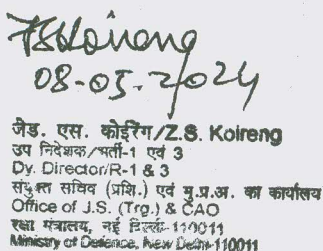 ZSKoireng
08-05-2024
जेड. एस. कोईरेंग/Z.S. Koireng
उप निदेशक/भर्ती-1 एवं 3
Dy. Director/R-1 & 3
संयुक्त सचिव (प्रशि.) एवं मु.प्र.अ. का कार्यालय
Office of J.S. (Trg.) & CAO
रक्षा मंत्रालय, नई दिल्ली-110011
Ministry of Defence, New Delhi-110011